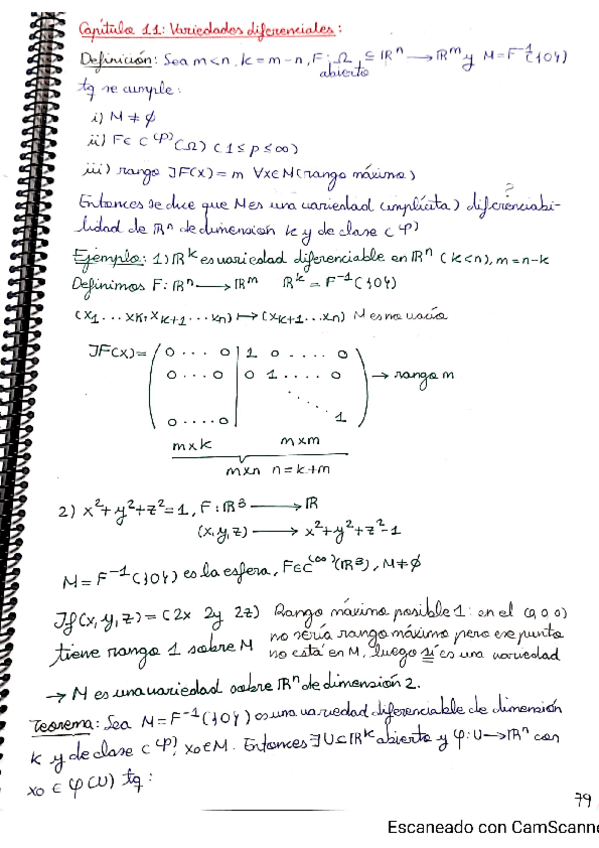 Capítulo 11: Variedades diferenciales:
Definición: Sea m<n, k=m-n, F: Ω ⊆ ℝⁿ → ℝᵐ y M=F⁻¹({0})
abierto
tq se cumple:
i) M ≠ ∅
ii) F ∈ C^(p)(Ω) (1 ≤ p ≤ ∞)
iii) rango JF(x) = m ∀x∈M (rango máximo)
?
Entonces se dice que M es una variedad (implícita) diferenciabi-
lidad de ℝⁿ de dimensión k y de clase C^(p)
Ejemplo: 1) ℝᵏ es variedad diferenciable en ℝⁿ (k<n), m=n-k
Definimos F: ℝⁿ → ℝᵐ ℝᵏ = F⁻¹({0})
(x₁ ... xₖ, xₖ₊₁ ... xₙ) ↦ (xₖ₊₁ ... xₙ) M es no vacía
JF(x) = ( 0 ... 0 | 1 0 .... 0
0 ... 0 | 0 1 .... 0 → rango m
.....
0 .... 0 | 1 )
m×k m×m
m×n n=k+m
2) x²+y²+z²=1, F: ℝ³ → ℝ
(x,y,z) → x²+y²+z²-1
M=F⁻¹({0}) es la esfera, F∈C^(∞)(ℝ³), M≠∅
Jf(x,y,z) = (2x 2y 2z) Rango máximo posible 1: en el (0,0,0)
no sería rango máximo pero ese punto
tiene rango 1 sobre M no está en M, luego sí es una variedad
→ M es una variedad sobre ℝⁿ de dimensión 2.
Teorema: Sea M=F⁻¹({0}) es una variedad diferenciable de dimensión
k y de clase C^(p), x₀∈M. Entonces ∃U⊆ℝᵏ abierto y φ: U→ℝⁿ con
x₀ ∈ φ(U) tq:
79
Escaneado con CamScanne